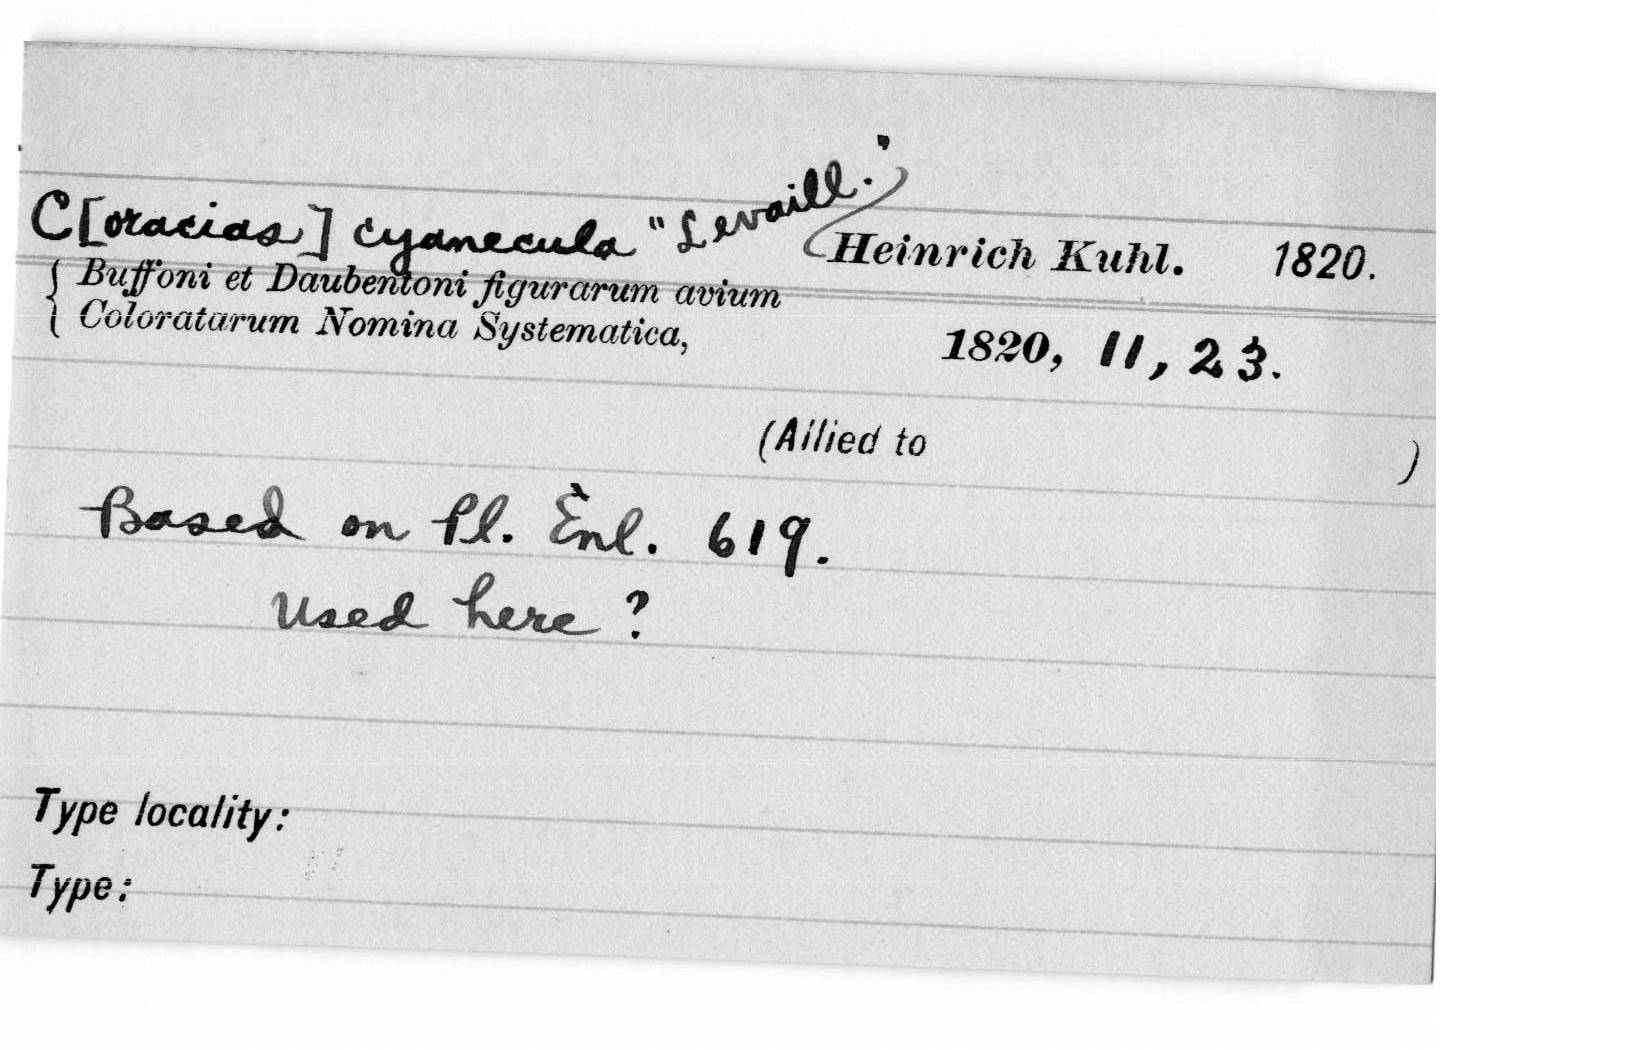 C[oracias] cyanecula "Levaill." Heinrich Kuhl. 1820.
Buffoni et Daubentoni figurarum avium
Coloratarum Nomina Systematica, 1820, 11, 23.
(Allied to )
Based on Pl. Enl. 619.
Used here?
Type locality:
Type: